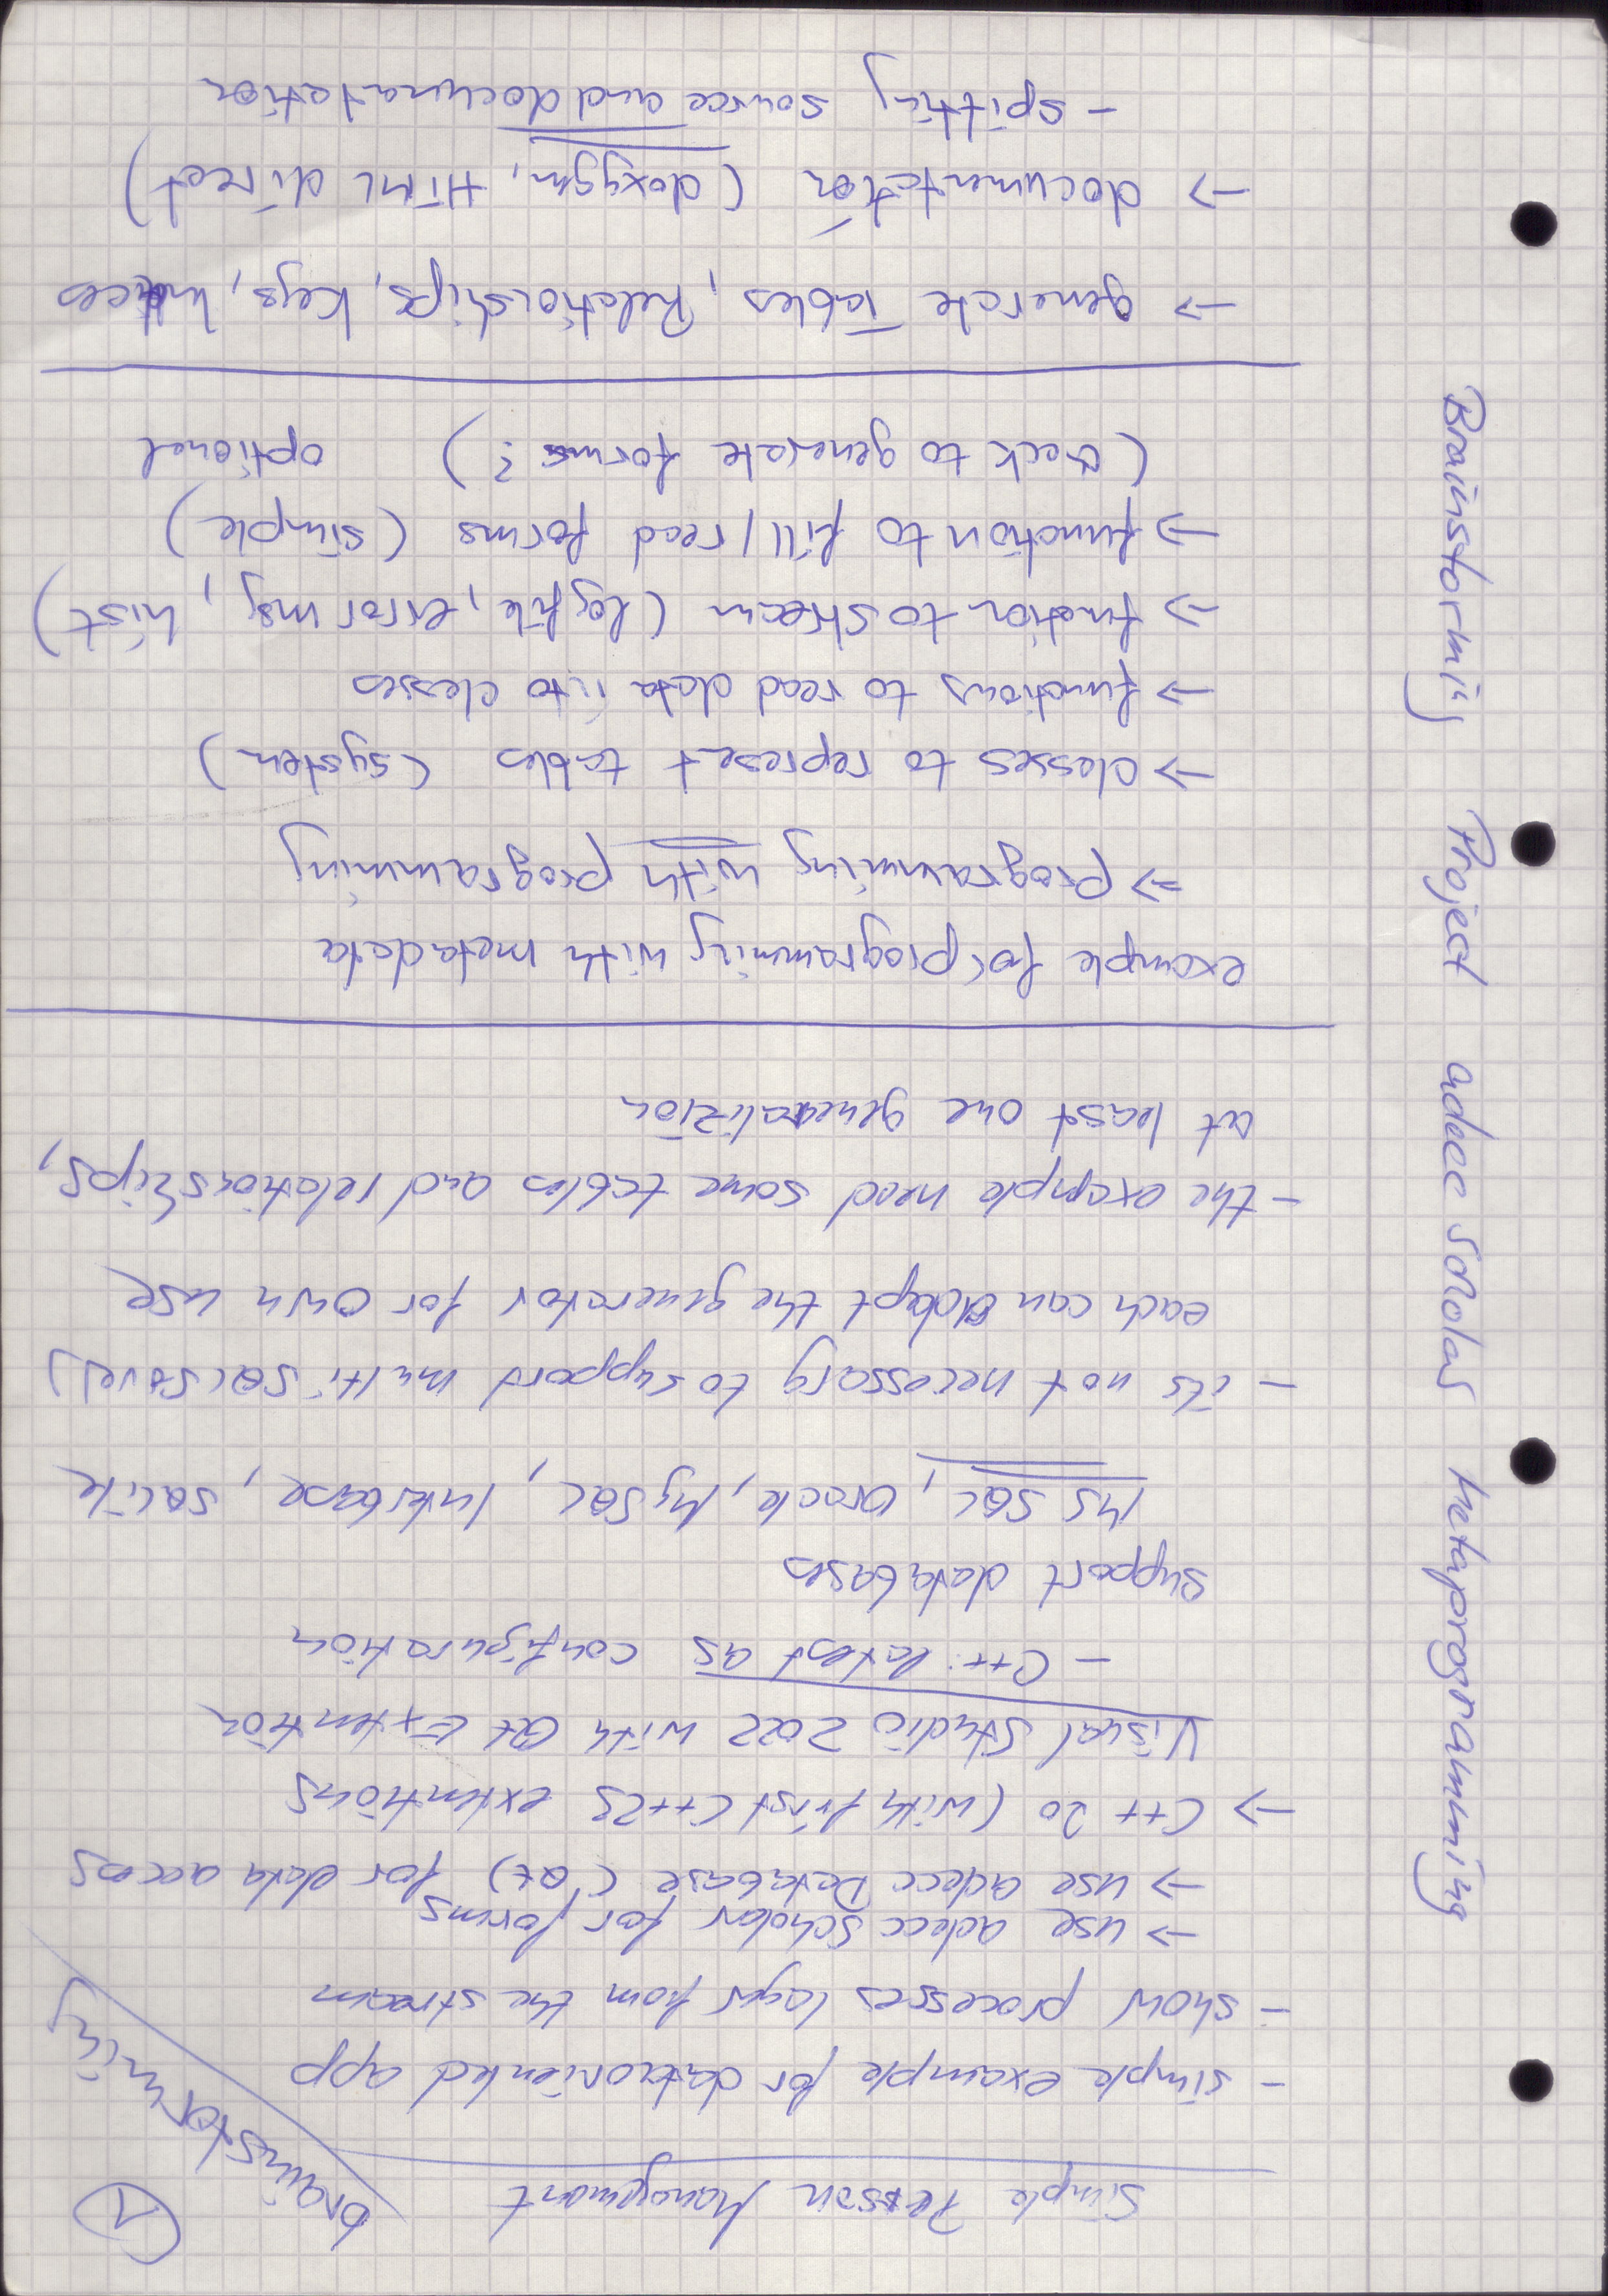 Simple Person Management
brainstorming
1
- simple example for dataoriented app
- show processes layer from the stream
→ use adecc Scholar for forms
→ use adecc Database (Qt) for data access
→ C++ 20 (with first C++23 extentions
Visual Studio 2022 with Qt Extention
- C++: latest as configuration
support databases
MS SQL, Oracle, MySQL, Interbase, SQLite
- its not necessary to support multi SQL
each can adapt the generator for own use
- the example need some tables and relationships,
at least one generalizion
example for programming with metadata
⇒ programming with programming
→ classes to represent tables (system)
→ functions to read data into classes
→ function to stream (logfile, error msg, hist)
→ function to fill / read forms (simple)
( to generate forms?) optional
→ generate Tables, Relationships, Keys, Indices
→ documentation (doxygen, HTML direct)
- spitting source and documatation
Brainstorming Project adecc Scholar Metaprogramming